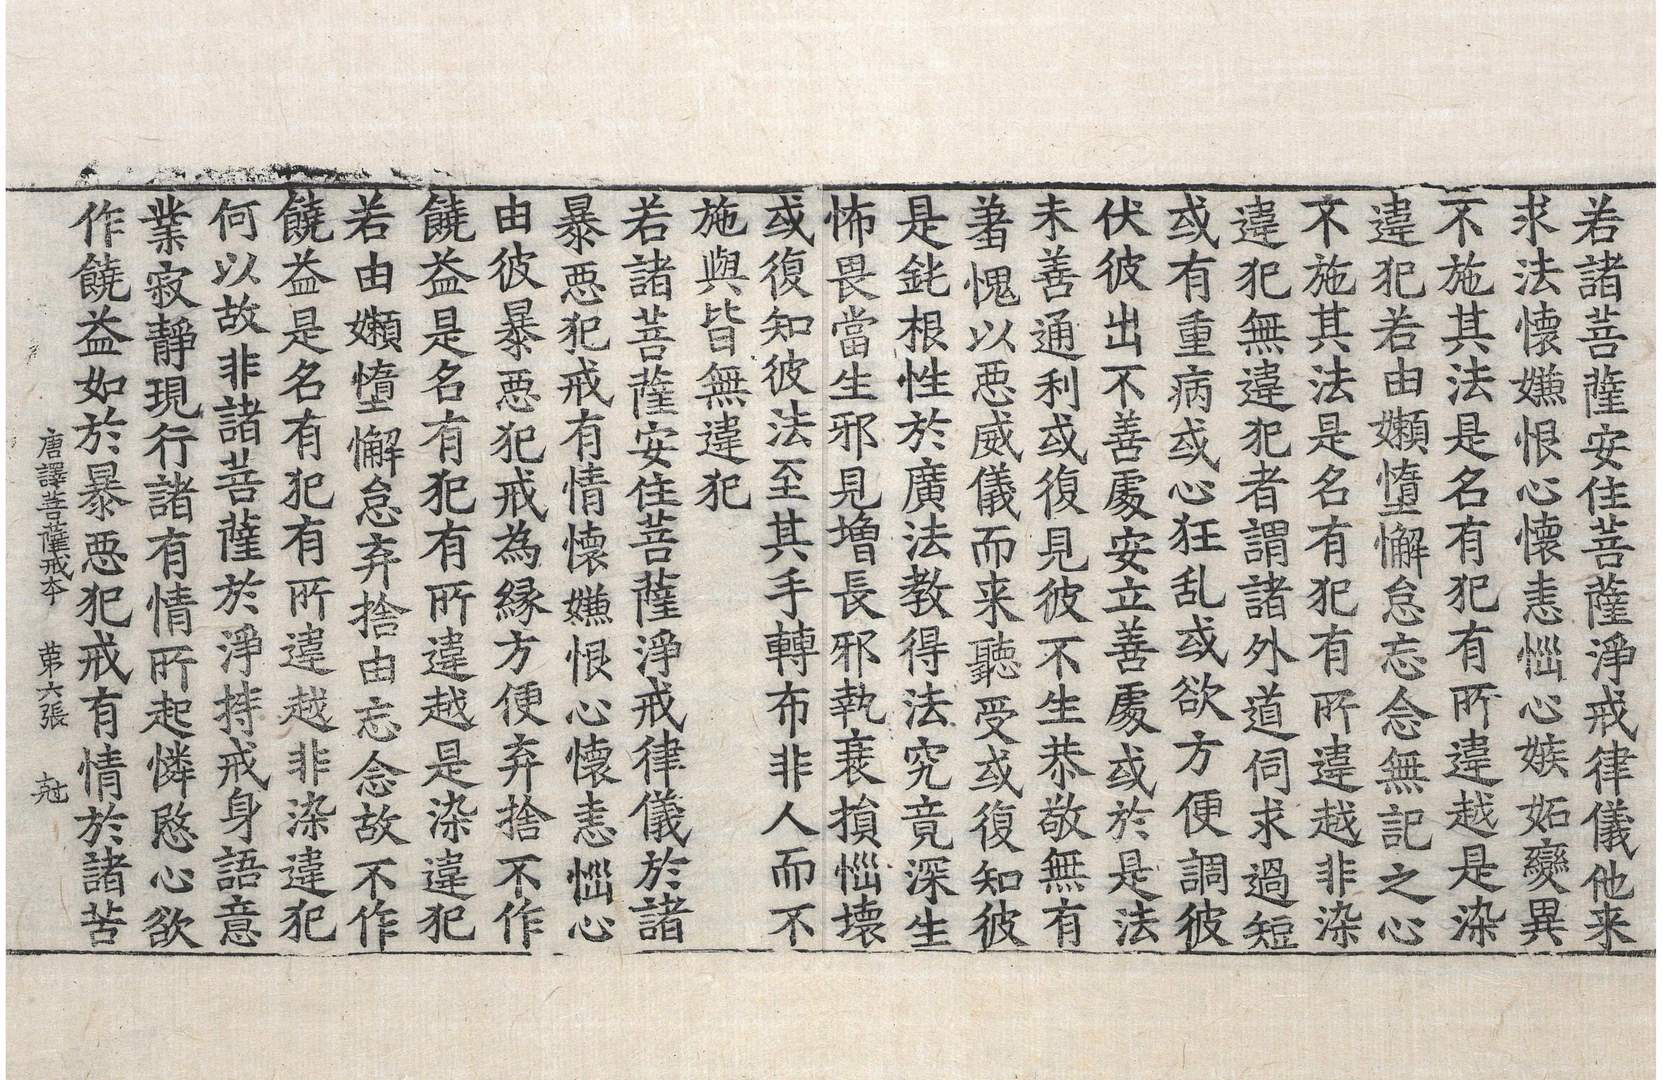 若諸菩薩安住菩薩淨戒律儀他来
求法懷嫌恨心懷恚惱心嫉妬變異
不施其法是名有犯有所違越是染
違犯若由嬾墮懈怠忘念無記之心
不施其法是名有犯有所違越非染
違犯無違犯者謂諸外道伺求過短
或有重病或心狂乱或欲方便調彼
伏彼出不善處安立善處或於是法
未善通利或復見彼不生恭敬無有
羞愧以惡威儀而来聽受或復知彼
是鈍根性於廣法教得法究竟深生
怖畏當生邪見增長邪執衰損惱壞
或復知彼法至其手轉布非人而不
施與皆無違犯
若諸菩薩安住菩薩淨戒律儀於諸
暴惡犯戒有情懷嫌恨心懷恚惱心
由彼暴惡犯戒為緣方便弃捨不作
饒益是名有犯有所違越是染違犯
若由嬾墮懈怠弃捨由忘念故不作
饒益是名有犯有所違越非染違犯
何以故非諸菩薩於淨持戒身語意
業寂靜現行諸有情所起憐愍心欲
作饒益如於暴惡犯戒有情於諸苦
唐譯菩薩戒本 第六張 㝎